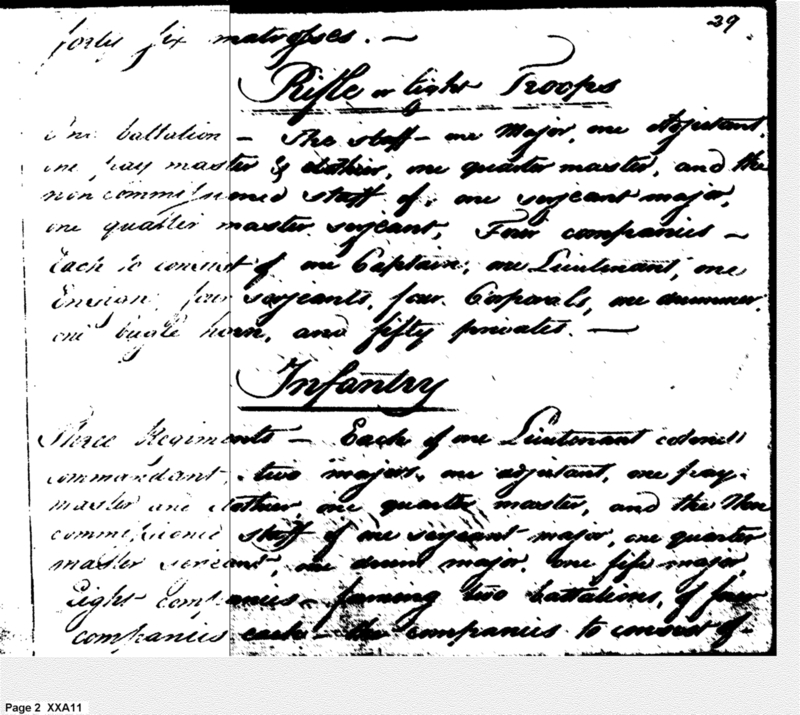 29
forty six matrosses. —
Rifle or light Troops
One battalion – The staff – one Major, one Adjutant,
one pay master & clothier, one quarter master, and the
non commissioned staff of, one serjeant major,
one quarter master serjeant, Four companies –
Each to consist of one Captain, one Lieutenant, one
Ensign, four serjeants, four Corporals, one drummer,
one bugle horn, and fifty privates. —
Infantry
Three Regiments – Each of one Lieutenant colonel
commandant, two majors, one adjutant, one pay-
master and clothier, one quarter master, and the Non
commissioned staff of one serjeant major, one quarter
master serjeant, one drum major, one fife major
Eight companies – forming two battalions, of four
companies each – the companies to consist of –
Page 2 XXA11